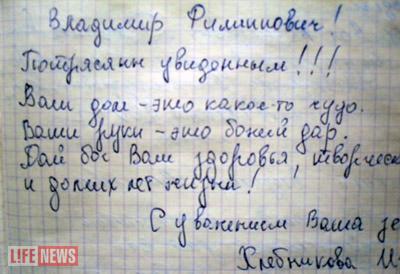 Владимир Филиппович!
Потрясены увиденным!!!
Ваш дом - это какое-то чудо.
Ваши руки - это божий дар.
Дай бог Вам здоровья, творческ
и долгих лет жизни!
С уважением Ваша зе
Хлебникова И
L!FE NEWS